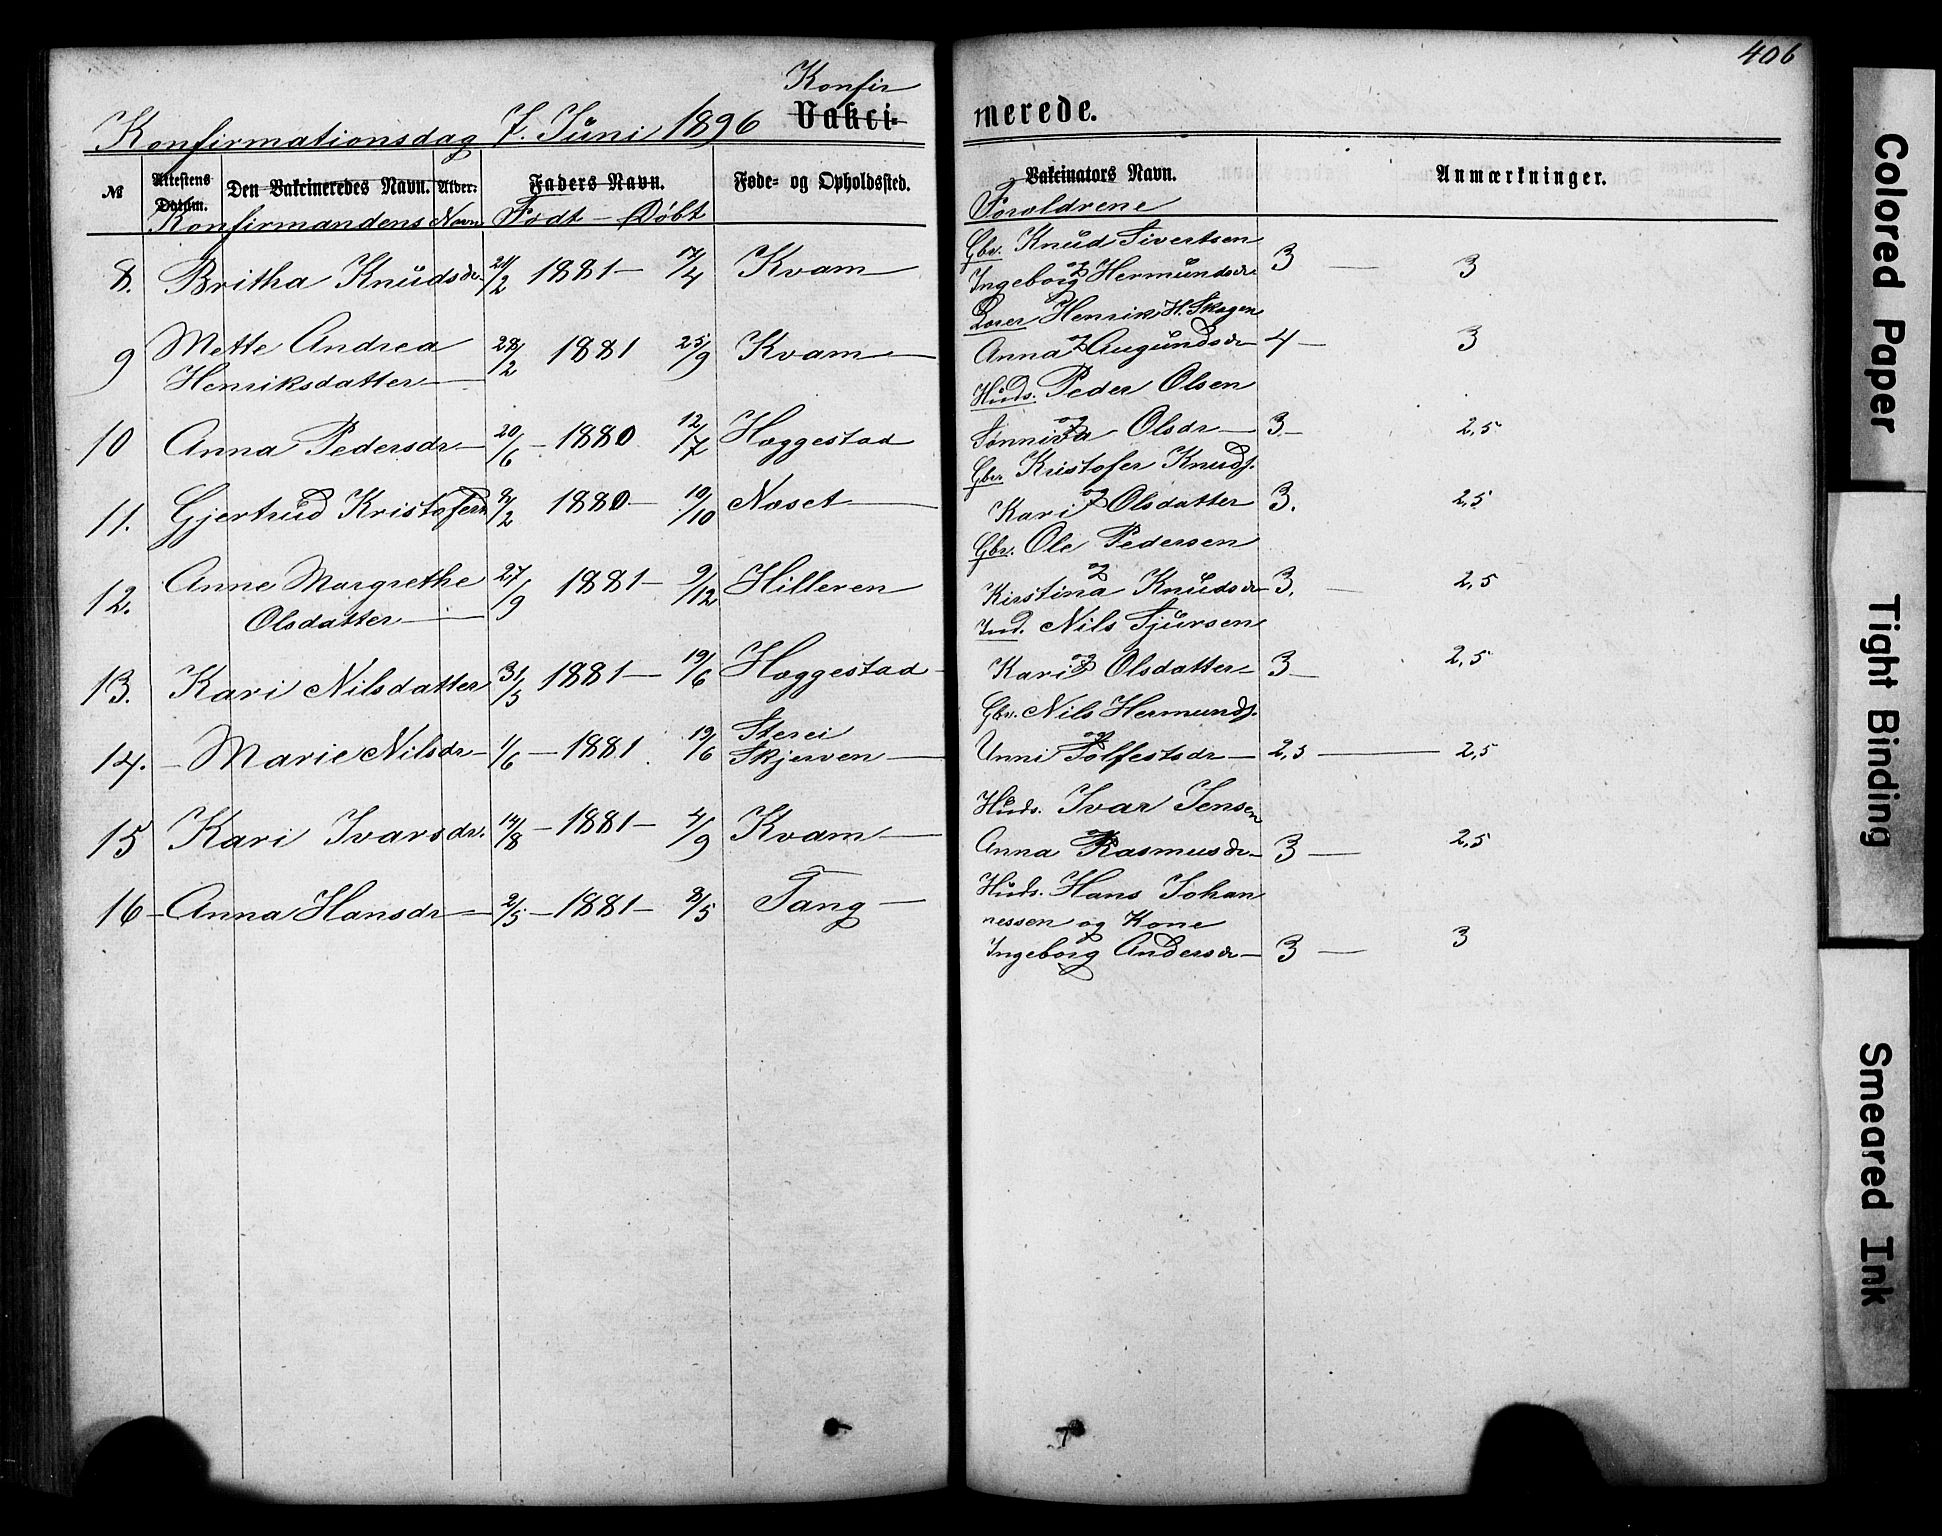 406
Konfir
Konfirmationsdag 7. Juni 1896 Vakci-
merede.
№ Attestens Datum. Den Vakcineredes Navn. Alder. Faders Navn. Føde- og Opholdssted.
Vakcinators Navn. Anmærkninger.
Konfirmandens Navn Født - Døbt
Foreldrene
Gbr. Knud Sivertsen
8. Britha Knudsdr. 21/2 1881 - 7/4 Kvam
og
Ingeborg Hermundsdr. 3 — 3
Henrik H. Skogen
9 Mette Andrea 28/2 1881 25/9 Kvam
Henriksdatter
og
Anna Augundsdr 4 — 3
Huds. Peder Olsen
10 Anna Pedersdr 20/6 - 1880 12/7 Hæggestad
og
Sønniva Olsdr 3 — 2,5
Gbr. Kristofer Knuds.
11. Gjertrud Kristofersd 9/2 1880 - 10/10 Næset
og
Kari Olsdatter 3. 2,5
Gbr. Ole Pedersen
12. Anne Margrethe 27/9 1881 - 9/12 Hilleren
Olsdatter
og
Kirstina Knudsdr 3. 2,5
Ind. Nils Sjursen
13. Kari Nilsdatter 31/5 1881 - 19/6 Hæggestad
og
Kari Olsdatter 3 — 2,5
Gbr. Nils Hermunds.
14. Marie Nilsdr 1/6 - 1881 19/6 Sterei
Skjerven
og
Unni Tolfestsdr 2,5 — 2,5
Huds. Ivar Jensen
15 Kari Ivarsdr. 14/8 - 1881 - 4/9 Kvam
og
Anna Rasmusdr 3 — 2,5
Huds. Hans Johan
16 - Anna Hansdr 2/5 - 1881 - 8/5 Tang
nessen og Kone
Ingeborg Andersdr 3 — 3
Colored Paper
Tight Binding
Smeared Ink